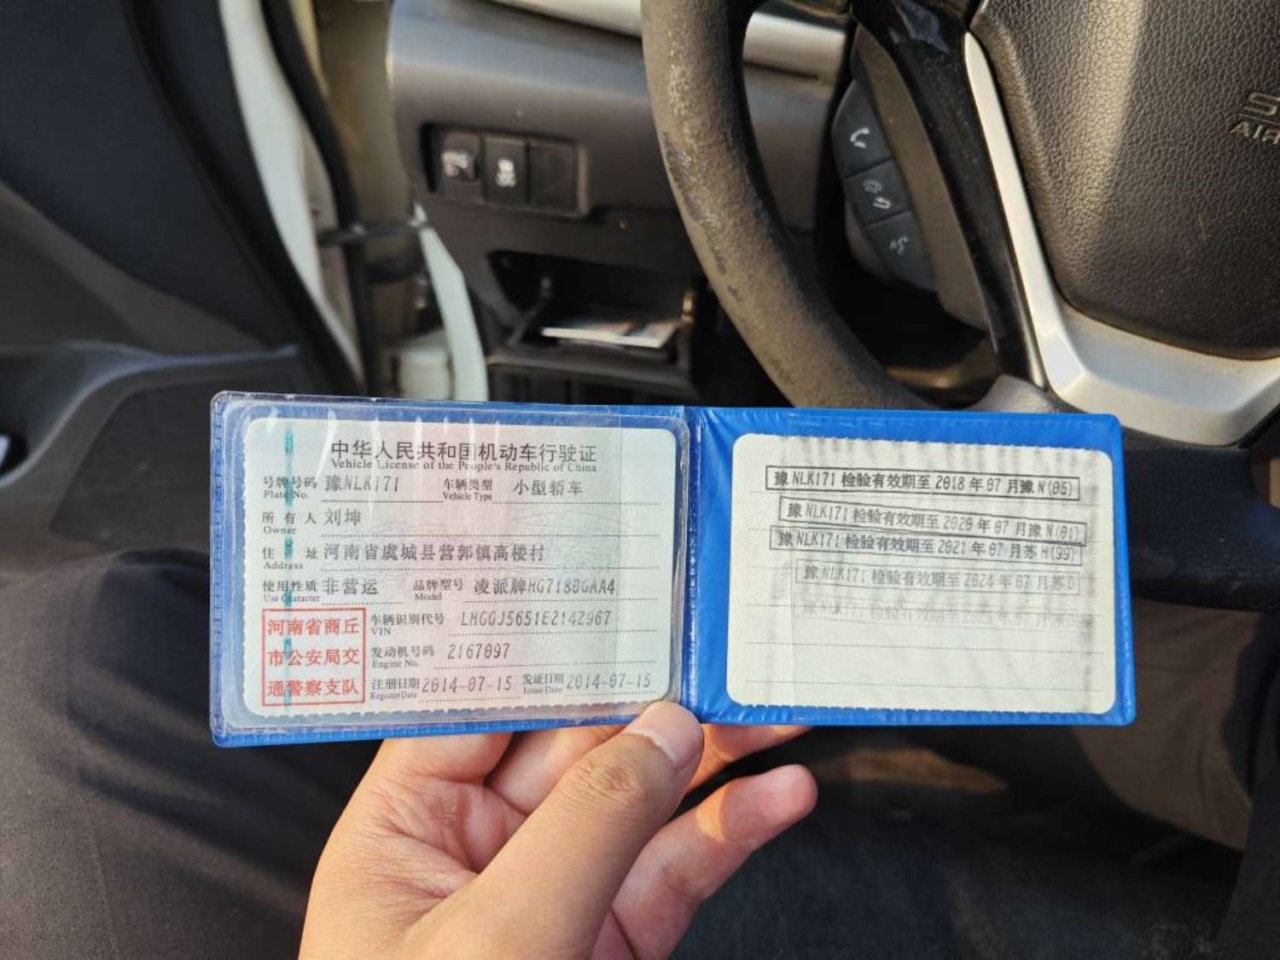 中华人民共和国机动车行驶证
Vehicle License of the People's Republic of China
号牌号码 豫NLK171 车辆类型 小型轿车
Plate No. Vehicle Type
所有人 刘坤
Owner
住址 河南省虞城县营郭镇高楼村
Address
使用性质 非营运 品牌型号 凌派牌HG7180GAA4
Use Character Model
河南省商丘
市公安局交
通警察支队
车辆识别代号 LHGGJ5651E2142967
VIN
发动机号码 2167097
Engine No.
注册日期 2014-07-15 发证日期 2014-07-15
Register Date Issue Date
豫NLK171 检验有效期至 2018 年 07 月豫 N(05)
豫 NLK171 检验有效期至 2020 年 07 月豫 N(01)
豫 NLK171 检验有效期至 2021 年 07 月苏 H(99)
豫 NLK171 检验有效期至 2024 年 07 月苏
AIR